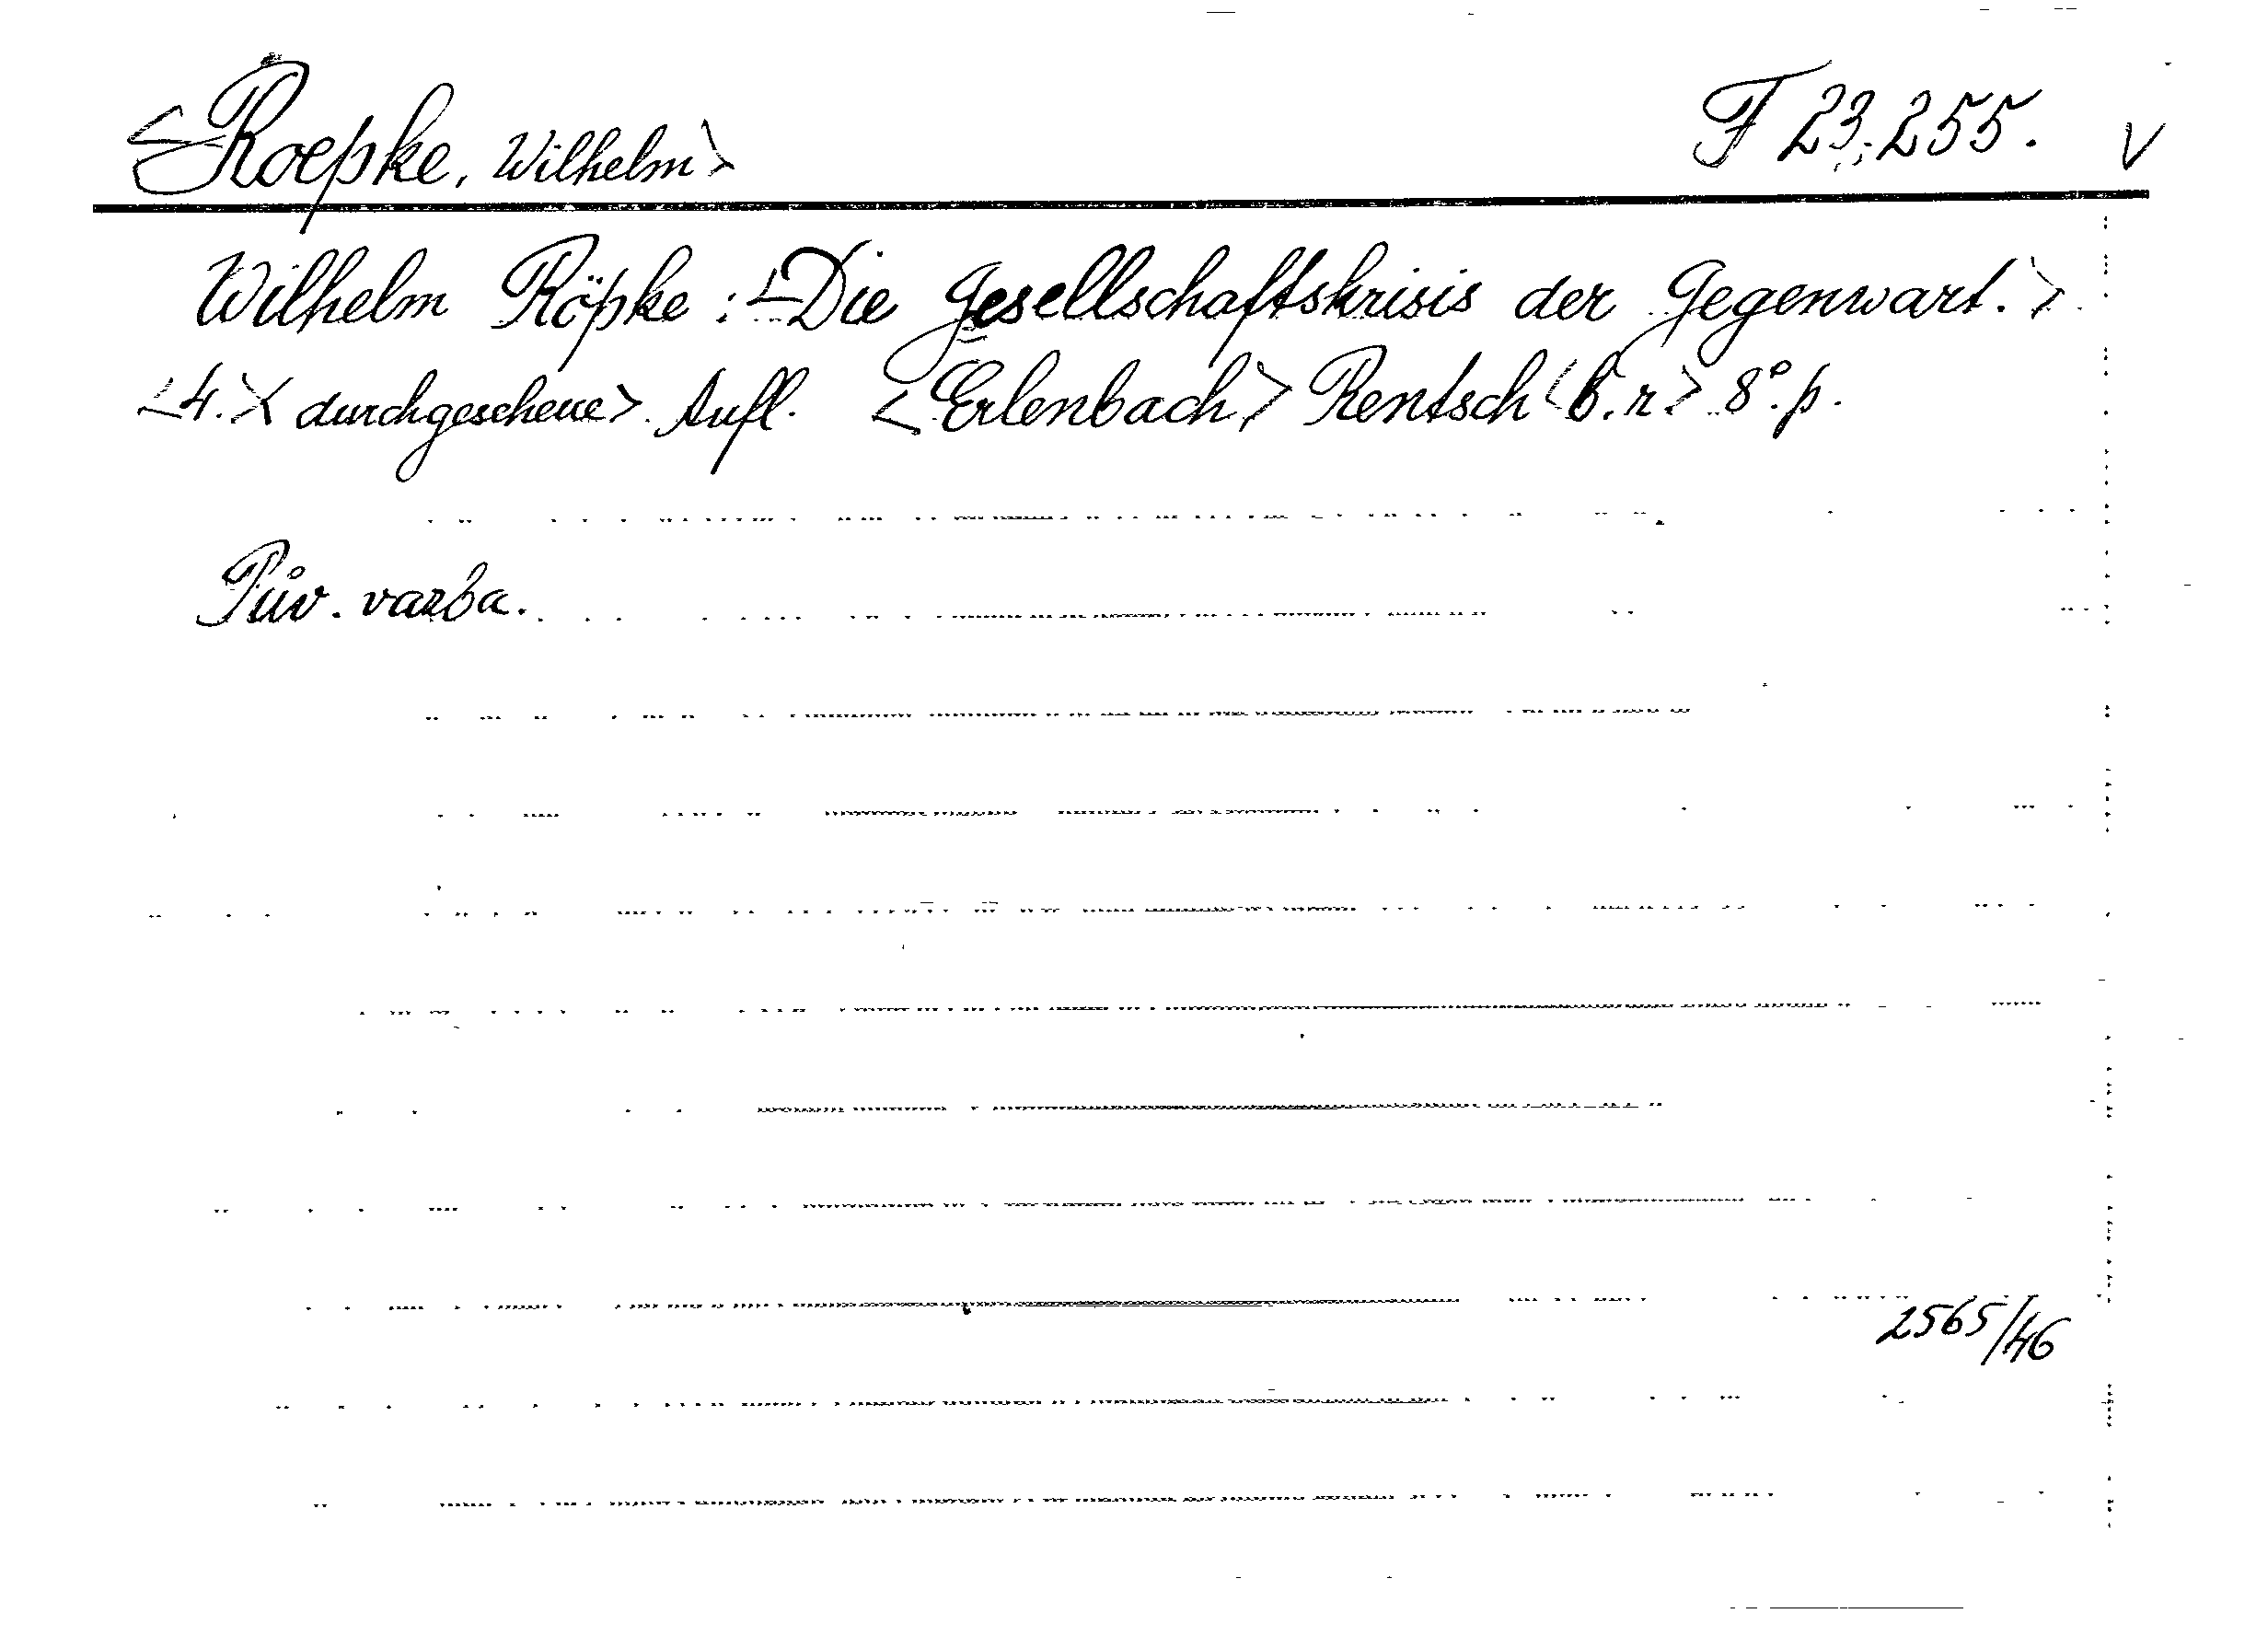 <Roepke, Wilhelm> F 23.255. V
Wilhelm Röpke: <Die Gesellschaftskrisis der Gegenwart.>
<4.>< durchgesehene>. Aufl. <Erlenbach,> Rentsch <b.r> 8°. p.
Pův. vazba.
2565/46